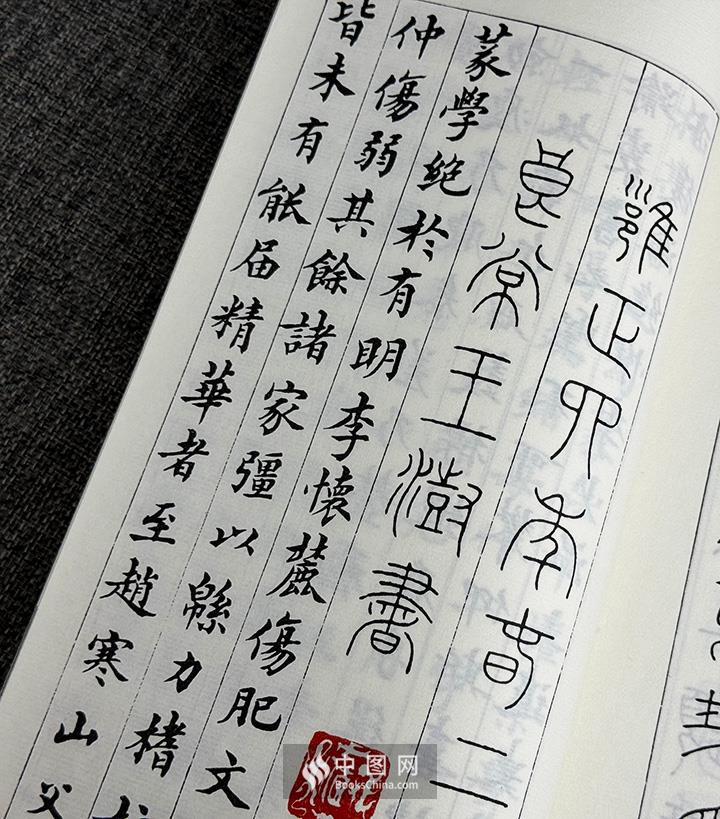 雝正四年春二
良常王澍書
篆學絕於有明李懷麓傷肥文
仲傷弱其餘諸家彊以緜力榰
皆未有能届精華者至趙寒山父
中图网
BooksChina.com